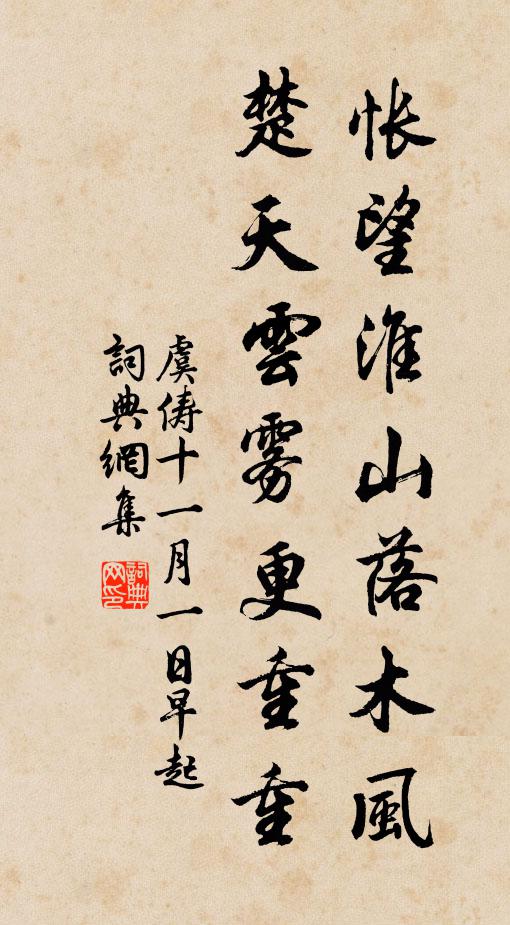 悵望淮山落木風
楚天雲雾更重重
虞俦十一月一日早起
詞典網集
詞典网印